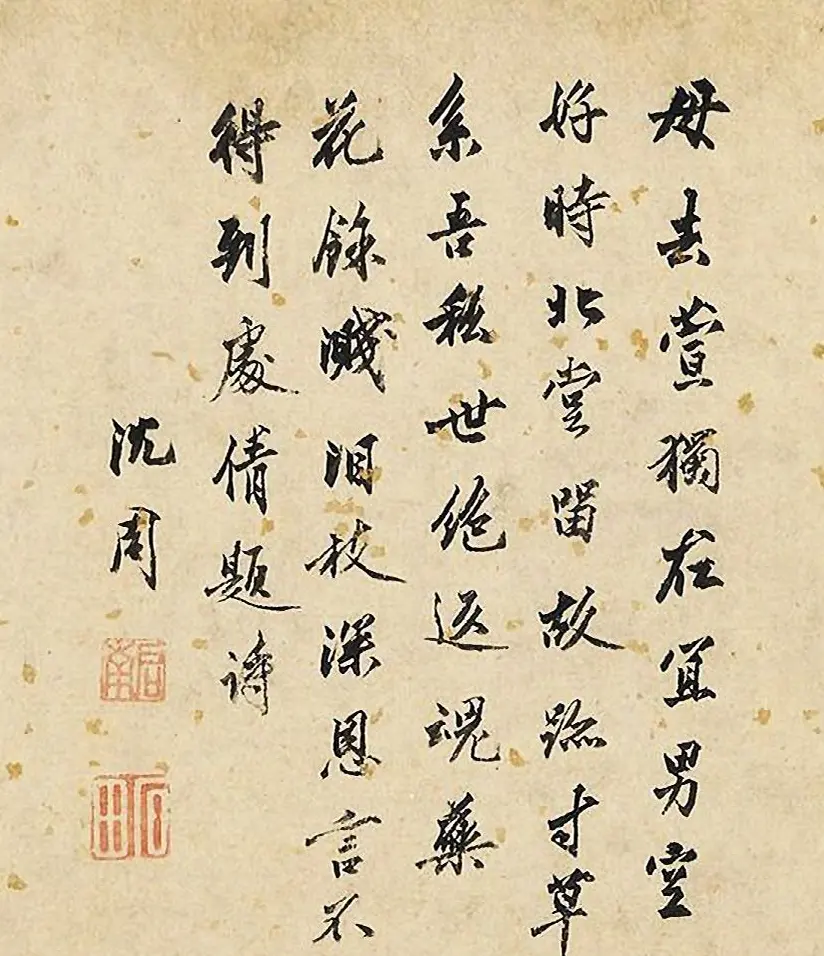 母去萱獨在宜男空
好時北堂留故跡寸草
系吾私世絶返魂藥
花餘濺泪枝深恩言不
得到處倩題詩
沈周
啟南
石田